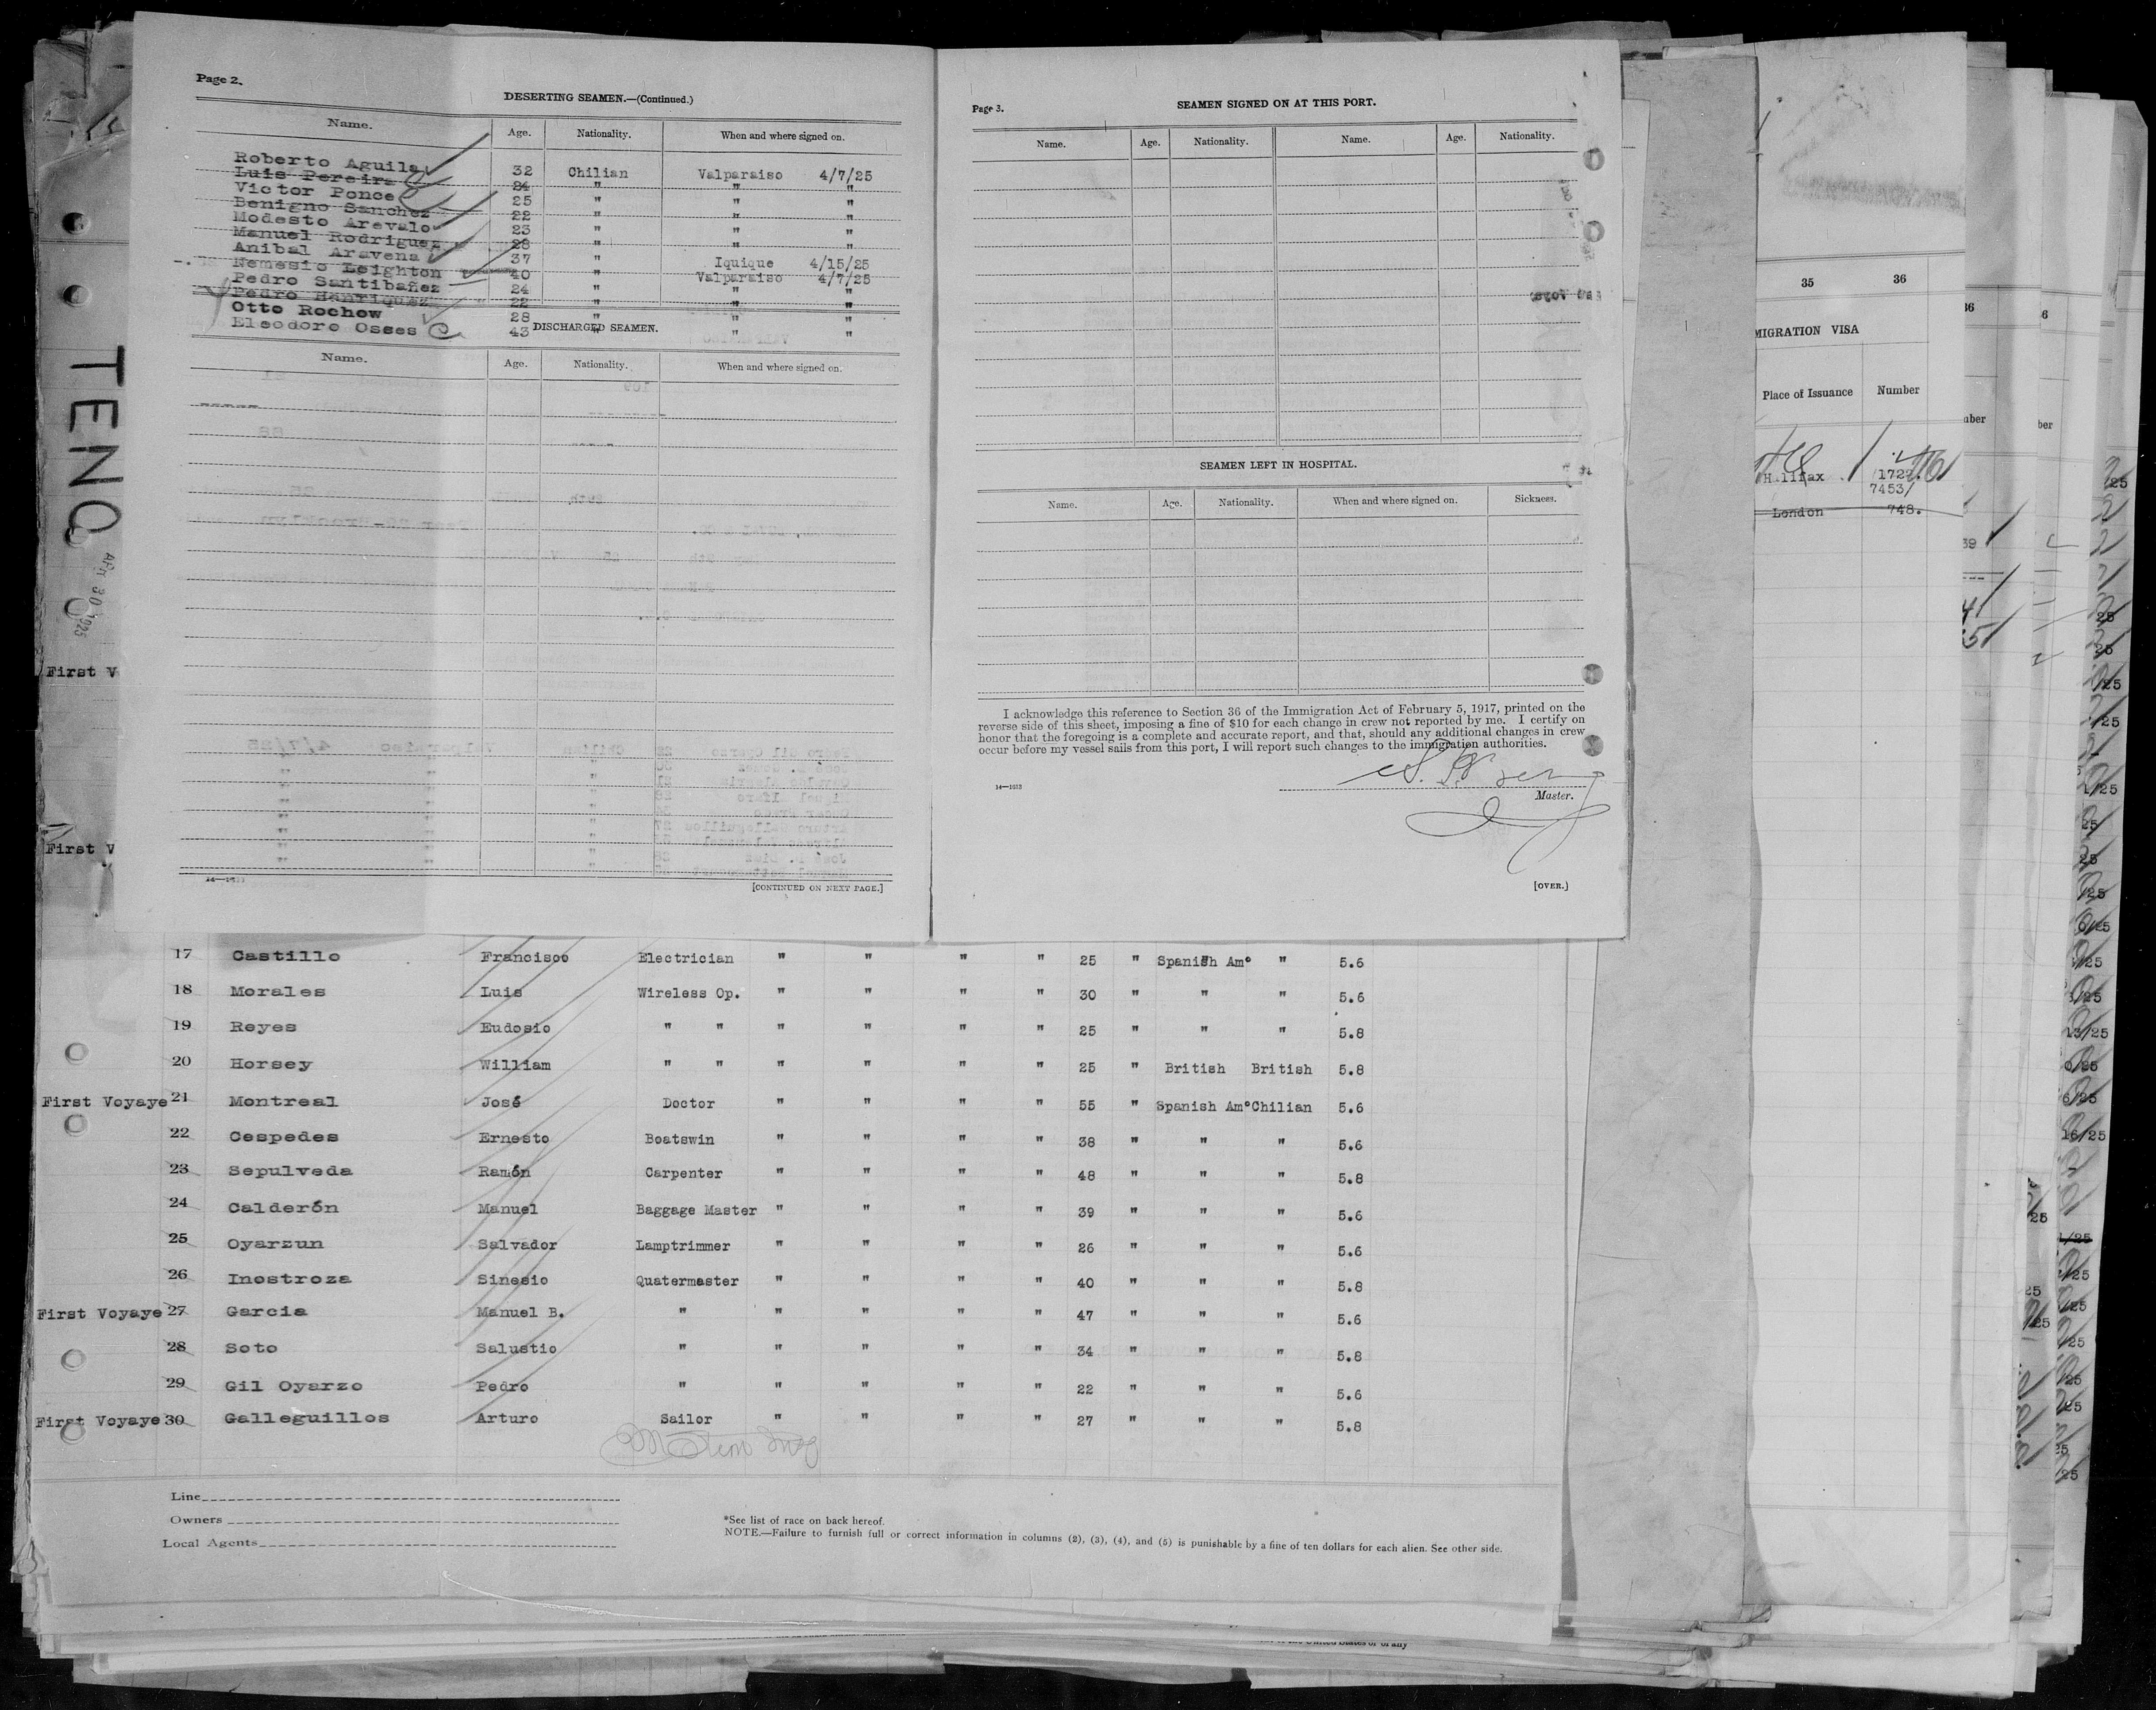 Page 2.
DESERTING SEAMEN.—(Continued.)
Name. Age. Nationality. When and where signed on.
Roberto Aguila 32 Chilian Valparaiso 4/7/25
Luis Pereira 24 " " "
Victor Ponce 25 " " "
Benigno Sanchez 22 " " "
Modesto Arevalo 23 " " "
Manuel Rodriguez 28 " " "
Anibal Aravena 37 " Iquique 4/15/25
Nemesio Leighton 40 Valparaiso 4/7/25
Pedro Santibañez 24 " " "
Pedro Henriquez 22 " " "
Otto Rochow 28 " " "
Eleodoro Osses 43 " " "
DISCHARGED SEAMEN.
Name. Age. Nationality. When and where signed on.
14—1633
[CONTINUED ON NEXT PAGE.]
Page 3.
SEAMEN SIGNED ON AT THIS PORT.
Name. Age. Nationality. Name. Age. Nationality.
SEAMEN LEFT IN HOSPITAL.
Name. Age. Nationality. When and where signed on. Sickness.
I acknowledge this reference to Section 36 of the Immigration Act of February 5, 1917, printed on the
reverse side of this sheet, imposing a fine of $10 for each change in crew not reported by me. I certify on
honor that the foregoing is a complete and accurate report, and that, should any additional changes in crew
occur before my vessel sails from this port, I will report such changes to the immigration authorities.
14—1633
Master.
[OVER.]
TENO
APR 30 1925
First V
First V
17 Castillo Francisco Electrician " " " " 25 " Spanish Am° " 5.6
18 Morales Luis Wireless Op. " " " " 30 " " " 5.6
19 Reyes Eudosio " " " " " " 25 " " " 5.8
20 Horsey William " " " " " " 25 " British British 5.8
First Voyaye 21 Montreal José Doctor " " " " 55 " Spanish Am° Chilian 5.6
22 Cespedes Ernesto Boatswin " " " " 38 " " " 5.6
23 Sepulveda Ramón Carpenter " " " " 48 " " " 5.8
24 Calderón Manuel Baggage Master " " " " 39 " " " 5.6
25 Oyarzun Salvador Lamptrimmer " " " " 26 " " " 5.6
26 Inostroza Sinesio Quatermaster " " " " 40 " " " 5.8
First Voyaye 27 Garcia Manuel B. " " " " " 47 " " " 5.6
28 Soto Salustio " " " " " 34 " " " 5.8
29 Gil Oyarzo Pedro " " " " " 22 " " " 5.6
First Voyaye 30 Galleguillos Arturo Sailor " " " " 27 " " " 5.8
Line
Owners
Local Agents
*See list of race on back hereof.
NOTE.—Failure to furnish full or correct information in columns (2), (3), (4), and (5) is punishable by a fine of ten dollars for each alien. See other side.
35 36
MIGRATION VISA
Place of Issuance Number
Halifax 1722
7453/
London 748.